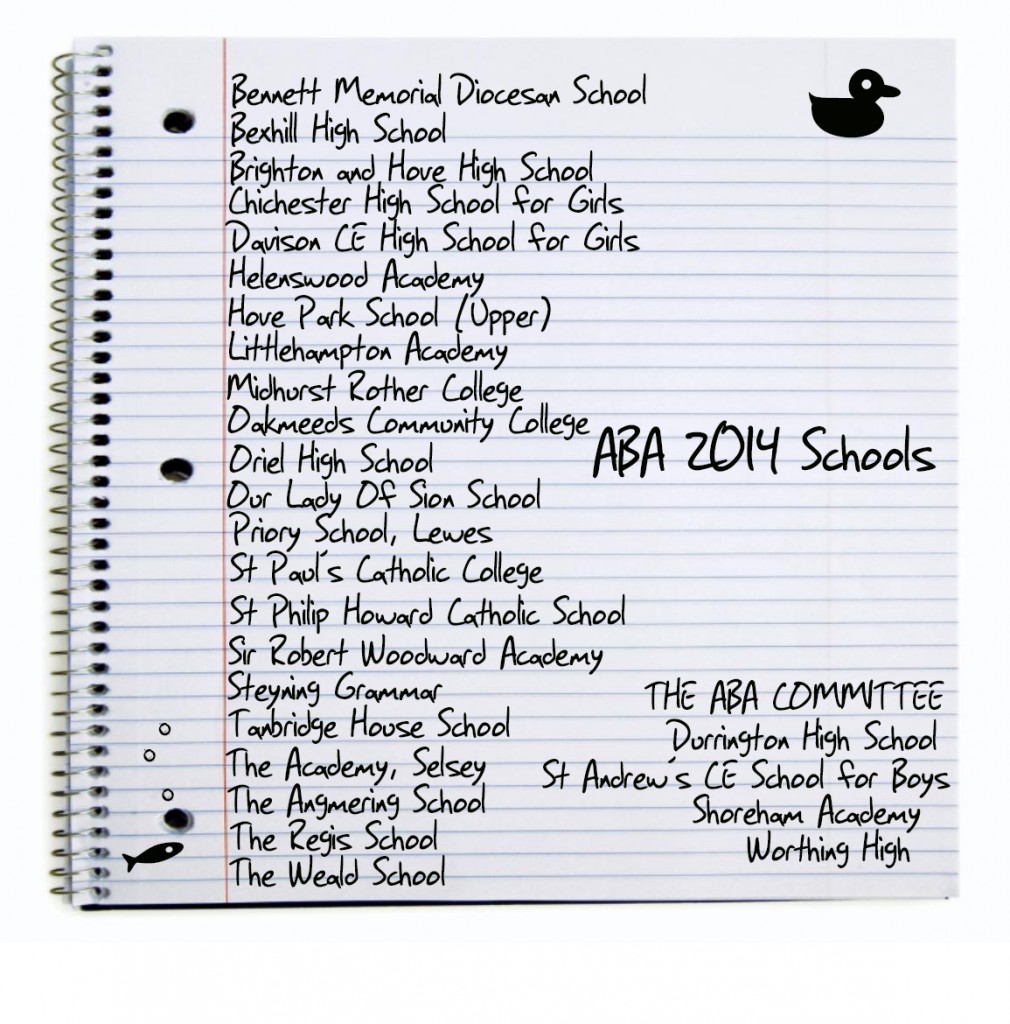 Bennett Memorial Diocesan School
Bexhill High School
Brighton and Hove High School
Chichester High School for Girls
Davison CE High School for Girls
Helenswood Academy
Hove Park School (Upper)
Littlehampton Academy
Midhurst Rother College
Oakmeeds Community College
Oriel High School
Our Lady Of Sion School
Priory School, Lewes
St Paul's Catholic College
St Philip Howard Catholic School
Sir Robert Woodward Academy
Steyning Grammar
Tanbridge House School
The Academy, Selsey
The Angmering School
The Regis School
The Weald School
ABA 2014 Schools
THE ABA COMMITTEE
Durrington High School
St Andrew's CE School for Boys
Shoreham Academy
Worthing High